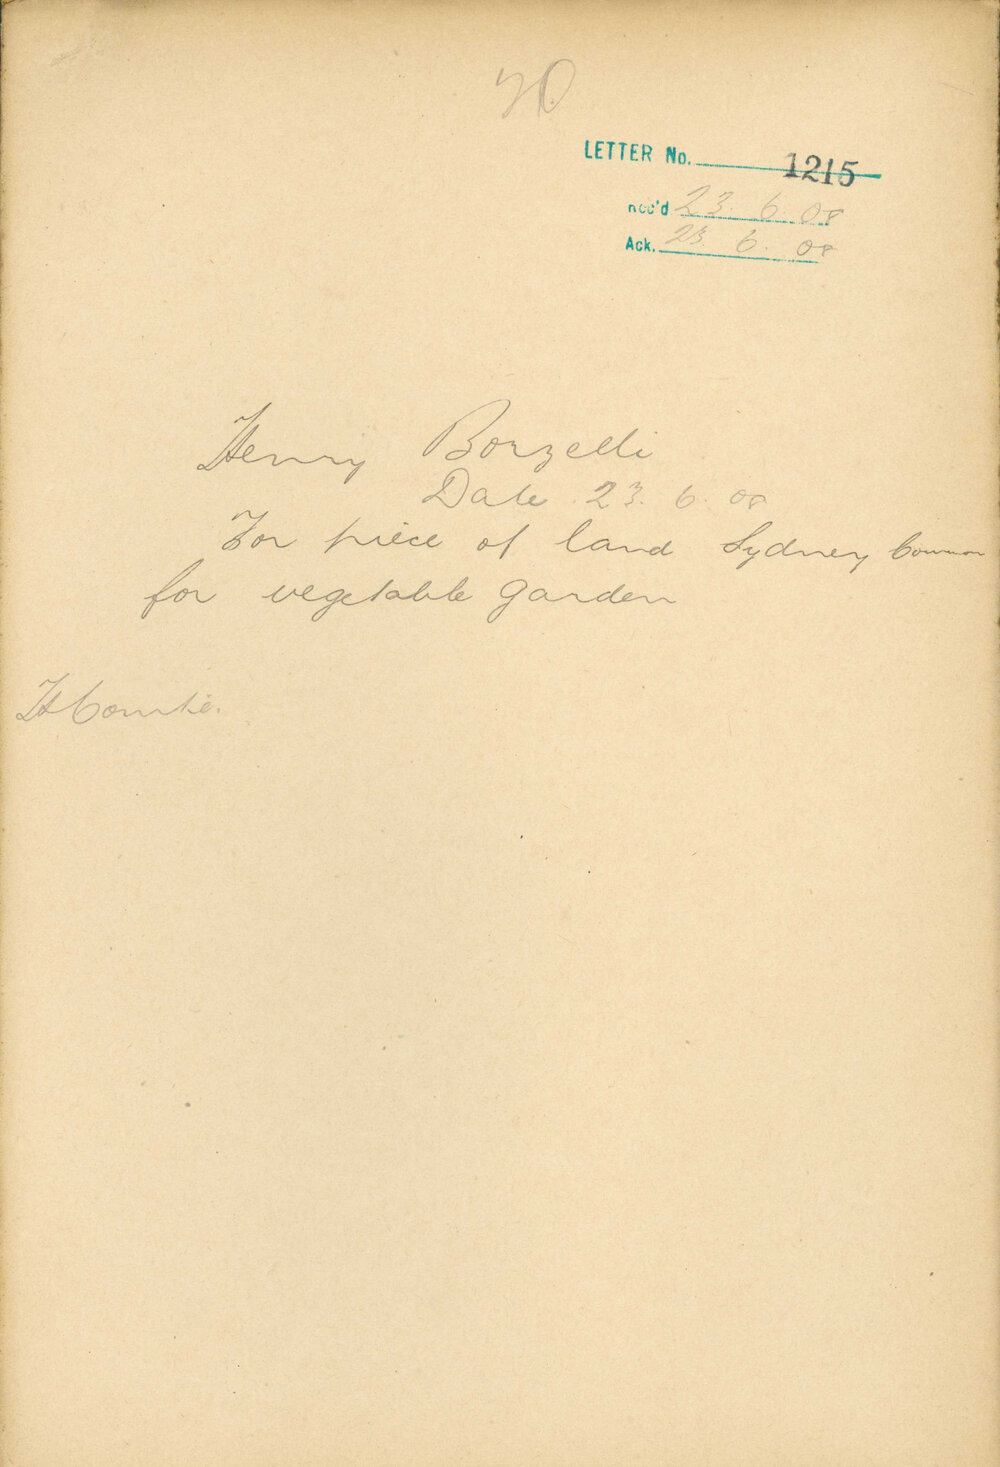 LETTER No. 1215
Rec'd 23. 6. 08
Ack. 23 6. 08
Henry Borzelli
Date 23. 6. 08
For piece of land Sydney Common
for vegetable garden